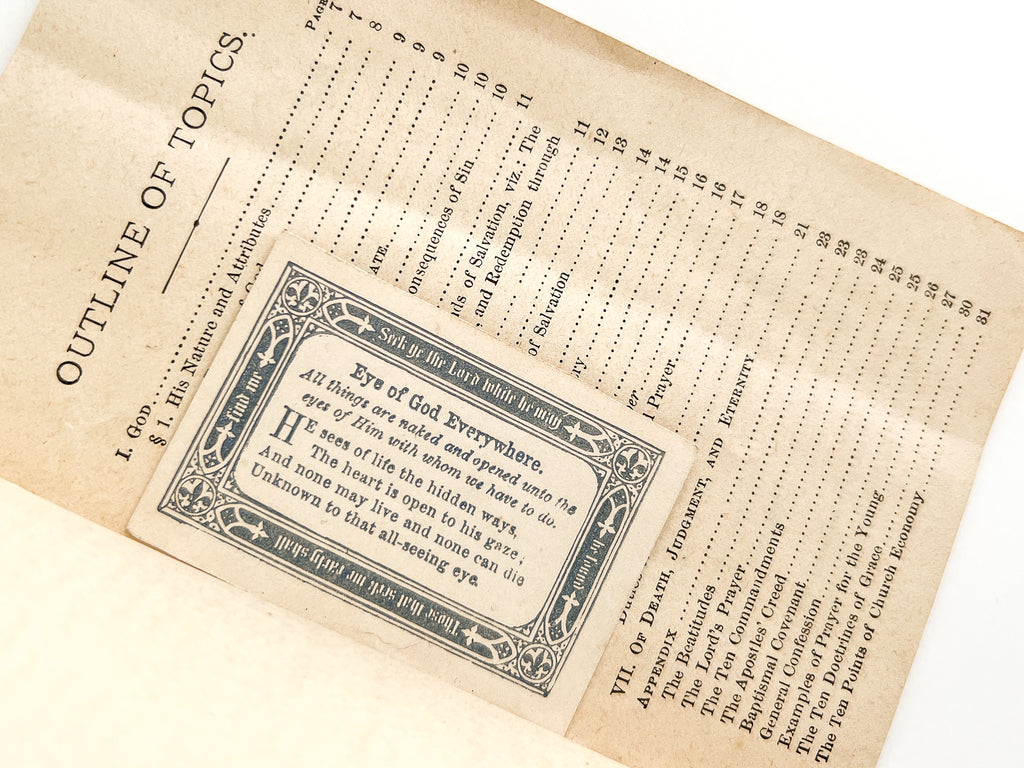 OUTLINE OF TOPICS.
PAGE
I. GOD 7
§ 1. His Nature and Attributes 7
8
9
9
9
ATE.
10
10
onsequences of Sin 10
11
ds of Salvation, viz.: The
and Redemption through
11
12
13
of Salvation
14
14
15
16
16
17
18
18
l Prayer
VII. OF DEATH, JUDGMENT, AND ETERNITY 21
APPENDIX 23
The Beatitudes 23
The Lord's Prayer 23
The Ten Commandments 24
The Apostles' Creed 25
Baptismal Covenant 25
General Confession 26
Examples of Prayer for the Young 27
The Ten Doctrines of Grace 30
The Ten Points of Church Economy 31
Seek ye the Lord while he may
be found
Those that seek me early shall
find me
Eye of God Everywhere.
All things are naked and opened unto the
eyes of Him with whom we have to do.
HE sees of life the hidden ways,
The heart is open to his gaze;
And none may live and none can die
Unknown to that all-seeing eye.